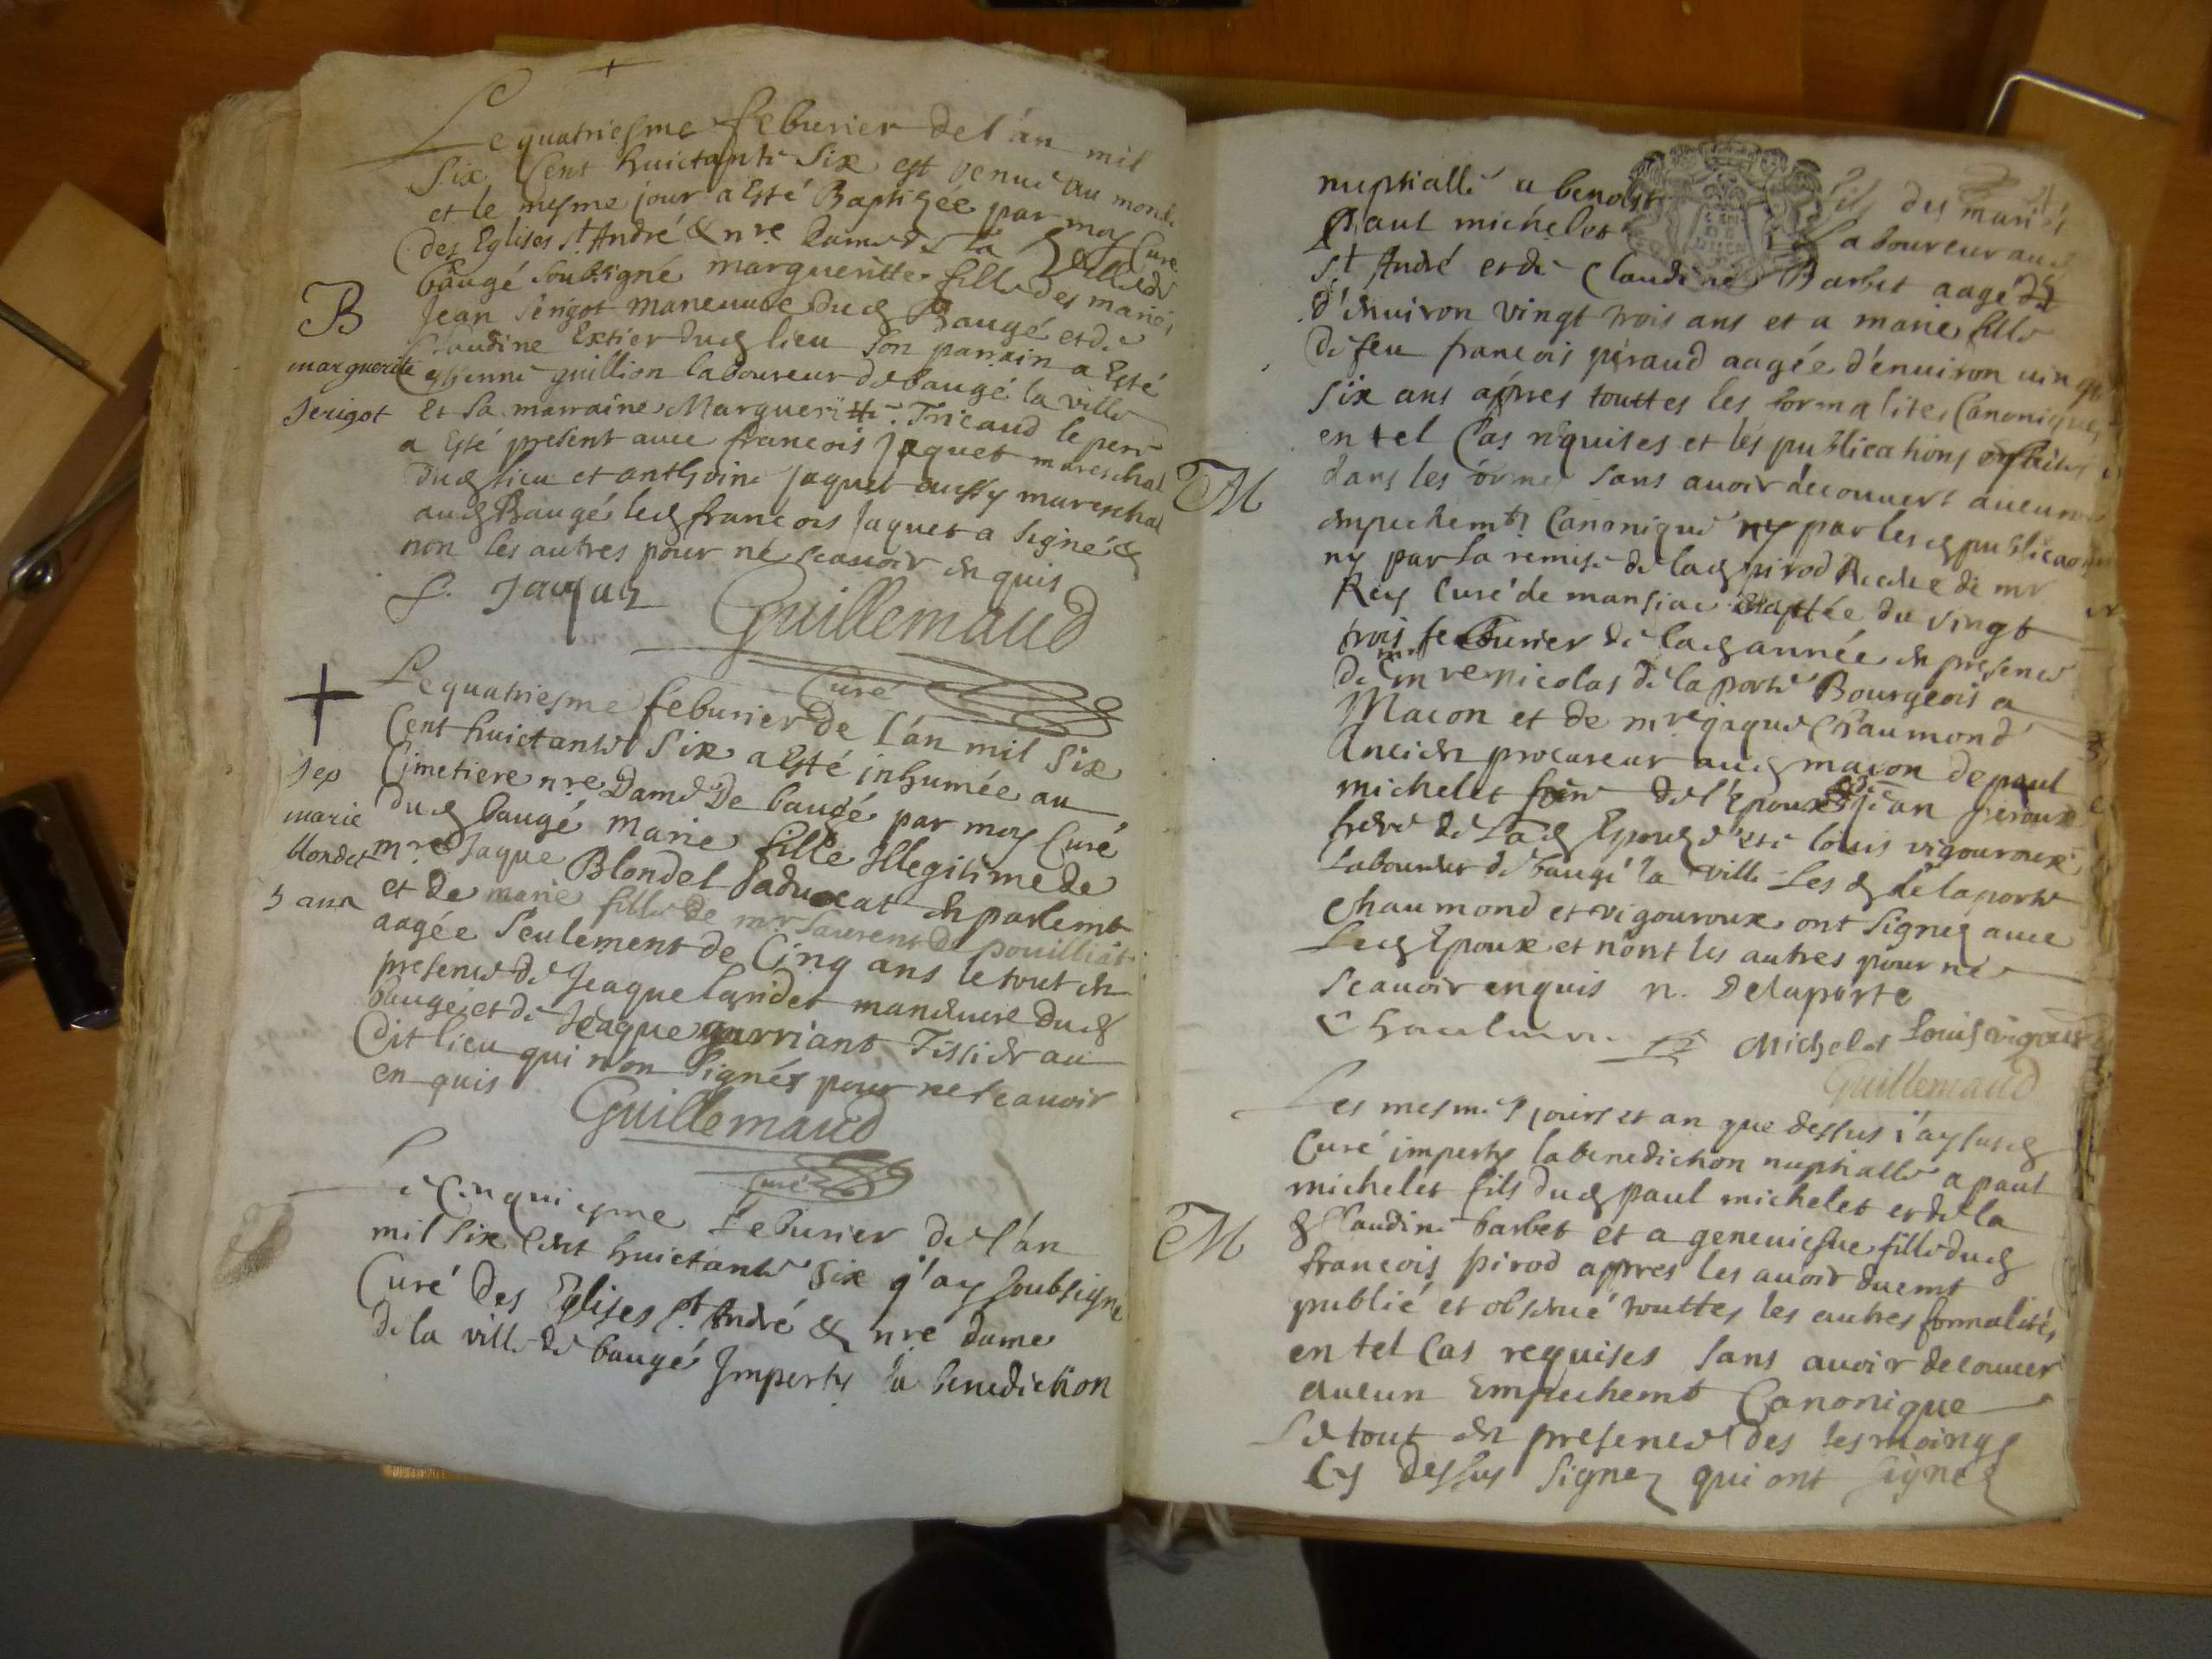 Le quatriesme feburier de l'an mil
Six Cent huictante Six est venue au monde
et le mesme jour a Esté Baptizée par moy Curé
des Eglises St André & nre Dame de la Ville de
baugé soubsigné margueritte fille des mariés
Jean Serigot maneuvre dud Baugé et de
Claudine Extier dud lieu son parrain a Esté
estienne guillion laboureur de baugé la ville
Et sa marraine Margueritte Tricaud le pere
a Esté present avec francois jaquet mareschal
dud lieu et anthoine jaquet aussy mareschal
aud Baugé led francois Jaquet a signé &
non les autres pour ne scavoir enquis
B
marguerite
Serigot
f. Jaquet
Guillemaud
Curé
Le quatriesme feburier de l'an mil Six
Cent huictante Six a Esté inhumée au
Cimetiere nre Dame De baugé par moy Curé
dud baugé Marie fille Illegitime de
mre Jaque Blondel advocat en parlemt
et de marie fille de mr Laurent De pouilliat
aagée seulement de Cinq ans le tout en
presence de Jeaque landet maneuvre dud
baugé et de Jeaque garriant Tissier au
Dit lieu qui n'on signés pour ne scavoir
enquis
Sep
marie
blondet
5 ans
Guillemaud
Curé
Le Cinquiesme feburier de l'an
mil Six Cent huictante Six j'ay soubsigné
Curé des Eglises St André & nre dame
de la ville de baugé Imperty la benediction
nuptialle a benoist fils des mariés
Paul michelet Laboureur aud
St André et de Claudine Barbet aagé
d'environ vingt trois ans et a marie fille
de feu francois peraud aagée d'environ vingt
Six ans apres touttes les formalites Canoniques
en tel Cas requises et les publications
dans les formes sans avoir découvert aucun
empechemt Canonique ny par lesd publicaons
ny par la remise de lad pirod de mr
Rey Curé de mansiac dattée du vingt
trois feburier de lad année en presence
de mre nicolas de la porte Bourgeois a
Macon et de mre jaque Chaumond
Ancien procureur aud macon de paul
michelet frere de l'Epoux jean peroux
frere de Lad Epouse et de louis vigouroux
Laboureur de baugé la ville Lesd delaporte
chaumond et vigouroux ont signez avec
Led Epoux et nont les autres pour ne
scavoir enquis n. Delaporte
M
Michelet Louis vigouroux
Guillemaud
Les mesmes jours et an que dessus j'ay susd
Curé imperty la benediction nuptialle a paul
michelet fils dud paul michelet et de la
d Claudine barbet et a geneviesve fille dud
francois pirod appres les avoir duemt
publié et observé touttes les autres formalités
en tel Cas requises sans avoir decouver
aucun Empechemt Canonique
Le tout en presence des tesmoings
Cy dessus signez qui ont signez
M